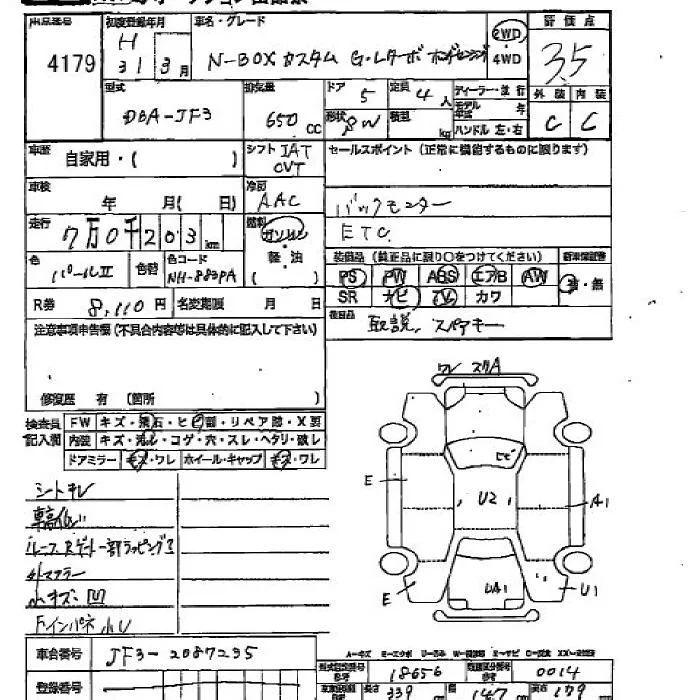 出品番号 初度登録年月 車名・グレード 評価点
4179 H 31 3月 N-BOX カスタム G・Lターボ ホンダセンシング 2WD 4WD 3.5
型式 排気量 ドア 定員 ディーラー・並行 外装 内装
DBA-JF3 650 CC 5 4人 モデル年式 年 C C
形状 8W 積載 kg ハンドル 左・右
車歴 自家用・( ) シフト IAT CVT セールスポイント (正常に機能するものに限ります)
車検 年 月( 日) 冷房 AAC バックモニター
走行 7万0千203km 燃料 ガソリン 軽油 ( ) ETC
色 パールII 色替 色コード NH-883PA
装備品 (純正品に限り○をつけてください) 新車保証書
PS PW ABS エアB AW 有・無
SR ナビ TV カワ
R券 8,110円 名変期限 月 日 後日品 取説、スペアキー
注意事項申告欄(不具合内容等は具体的に記入して下さい)
修復歴 有 (箇所 )
ワレ スリA
検査員記入欄 FW キズ・飛石・ヒビ割・リペア跡・X要
内装 キズ・汚れ・コゲ・穴・スレ・ヘタリ・破レ
ドアミラー キズ・ワレ ホイール・キャップ キズ・ワレ
ヒビ
E U2 A1
シートキレ
ルーフ Rゲート一部ラッピング
外マフラー
小キズ・凹
E UA1 U1
A-キズ E-エクボ U-凹み
車台番号 JF3-2087235
型式指定番号 18656 類別区分番号 0014
登録番号 長さ 339 cm 幅 147 cm 高さ 179